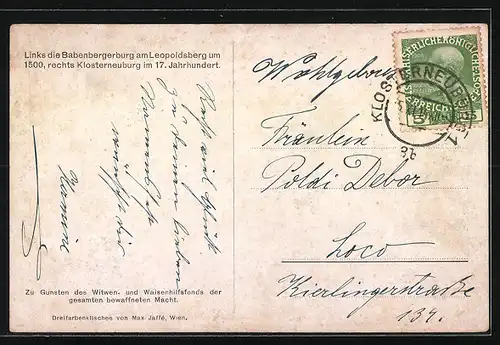 Links die Babenbergerburg am Leopoldsberg um
1500, rechts Klosterneuburg im 17. Jahrhundert.
Recht viel Glück
zu deinem lieben
Namensfest
wünscht dir
Zu Gunsten des Witwen- und Waisenhilfsfonds der
gesamten bewaffneten Macht.
Dreifarbenklischee von Max Jaffé, Wien.
KLOSTERNEUBURG 1
Wohlgeboren
Fräulein
Poldi Debor
Loco
Kierlingerstraße
134.